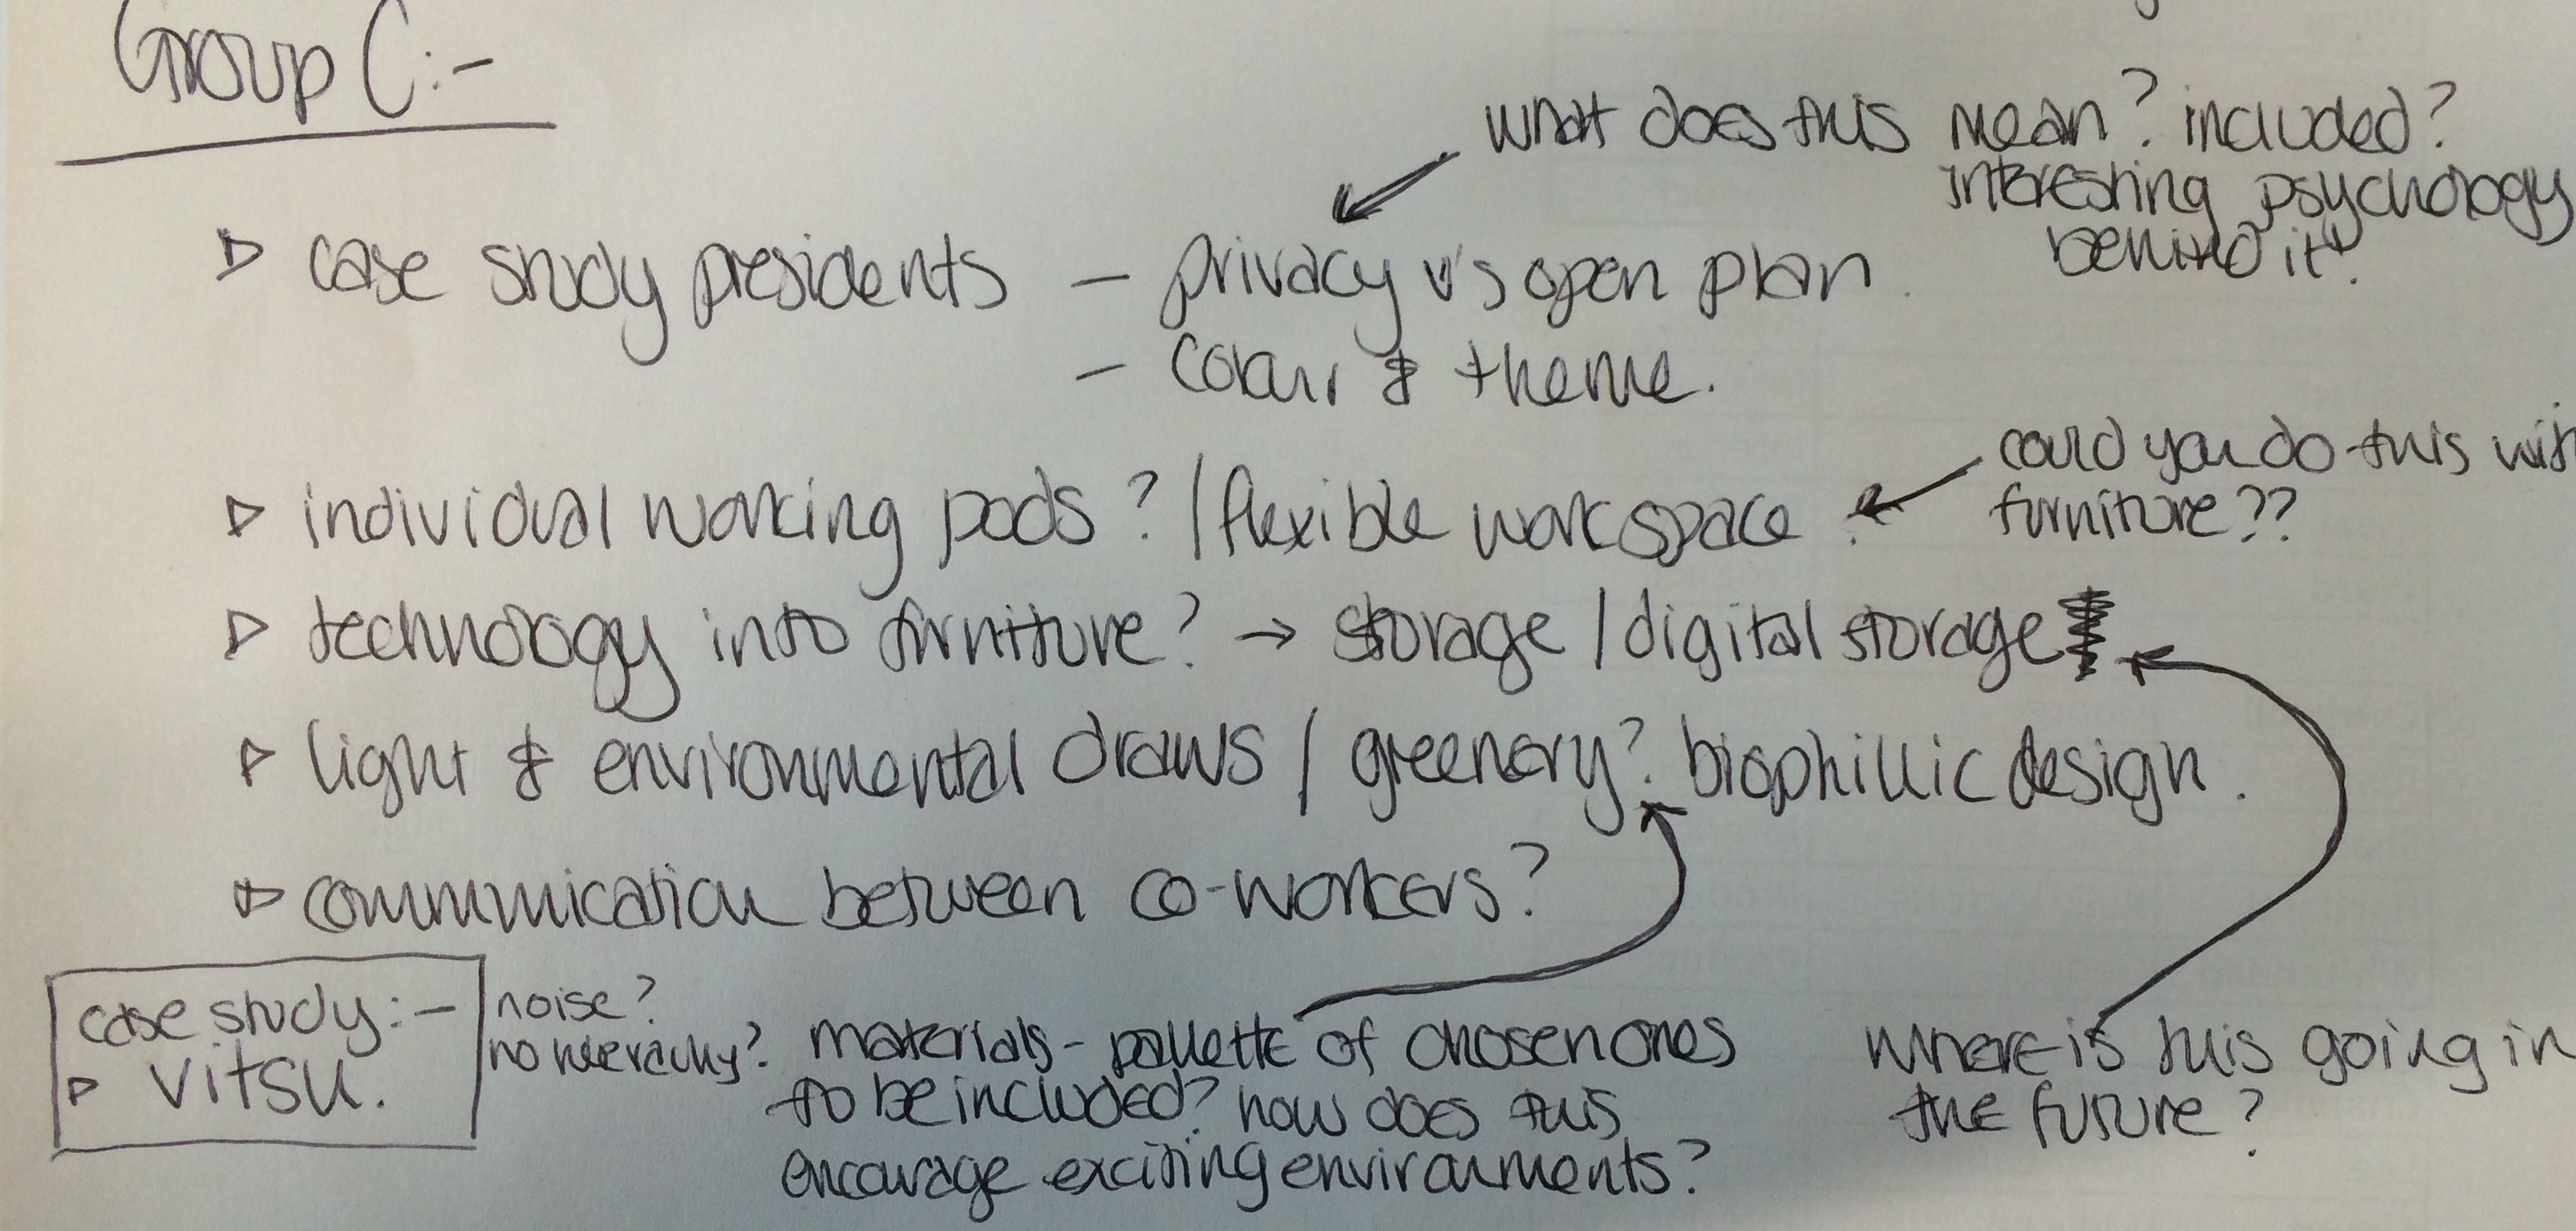 Group C:-
what does this mean? included?
interesting psychology
behind it!
▷ case study presidents - privacy v's open plan.
- Colour & theme.
could you do this
furniture??
▷ individual working pods? / flexible workspace
▷ technology into furniture? → storage / digital storage
▷ light & environmental draws / greenery? biophillic design.
▷ communication between co-workers?
case study:-
▷ vitsu.
noise?
no hierachy?
materials - pallette of chosen ones
to be included? how does this
encourage exciting environments?
where is this going in
the future?